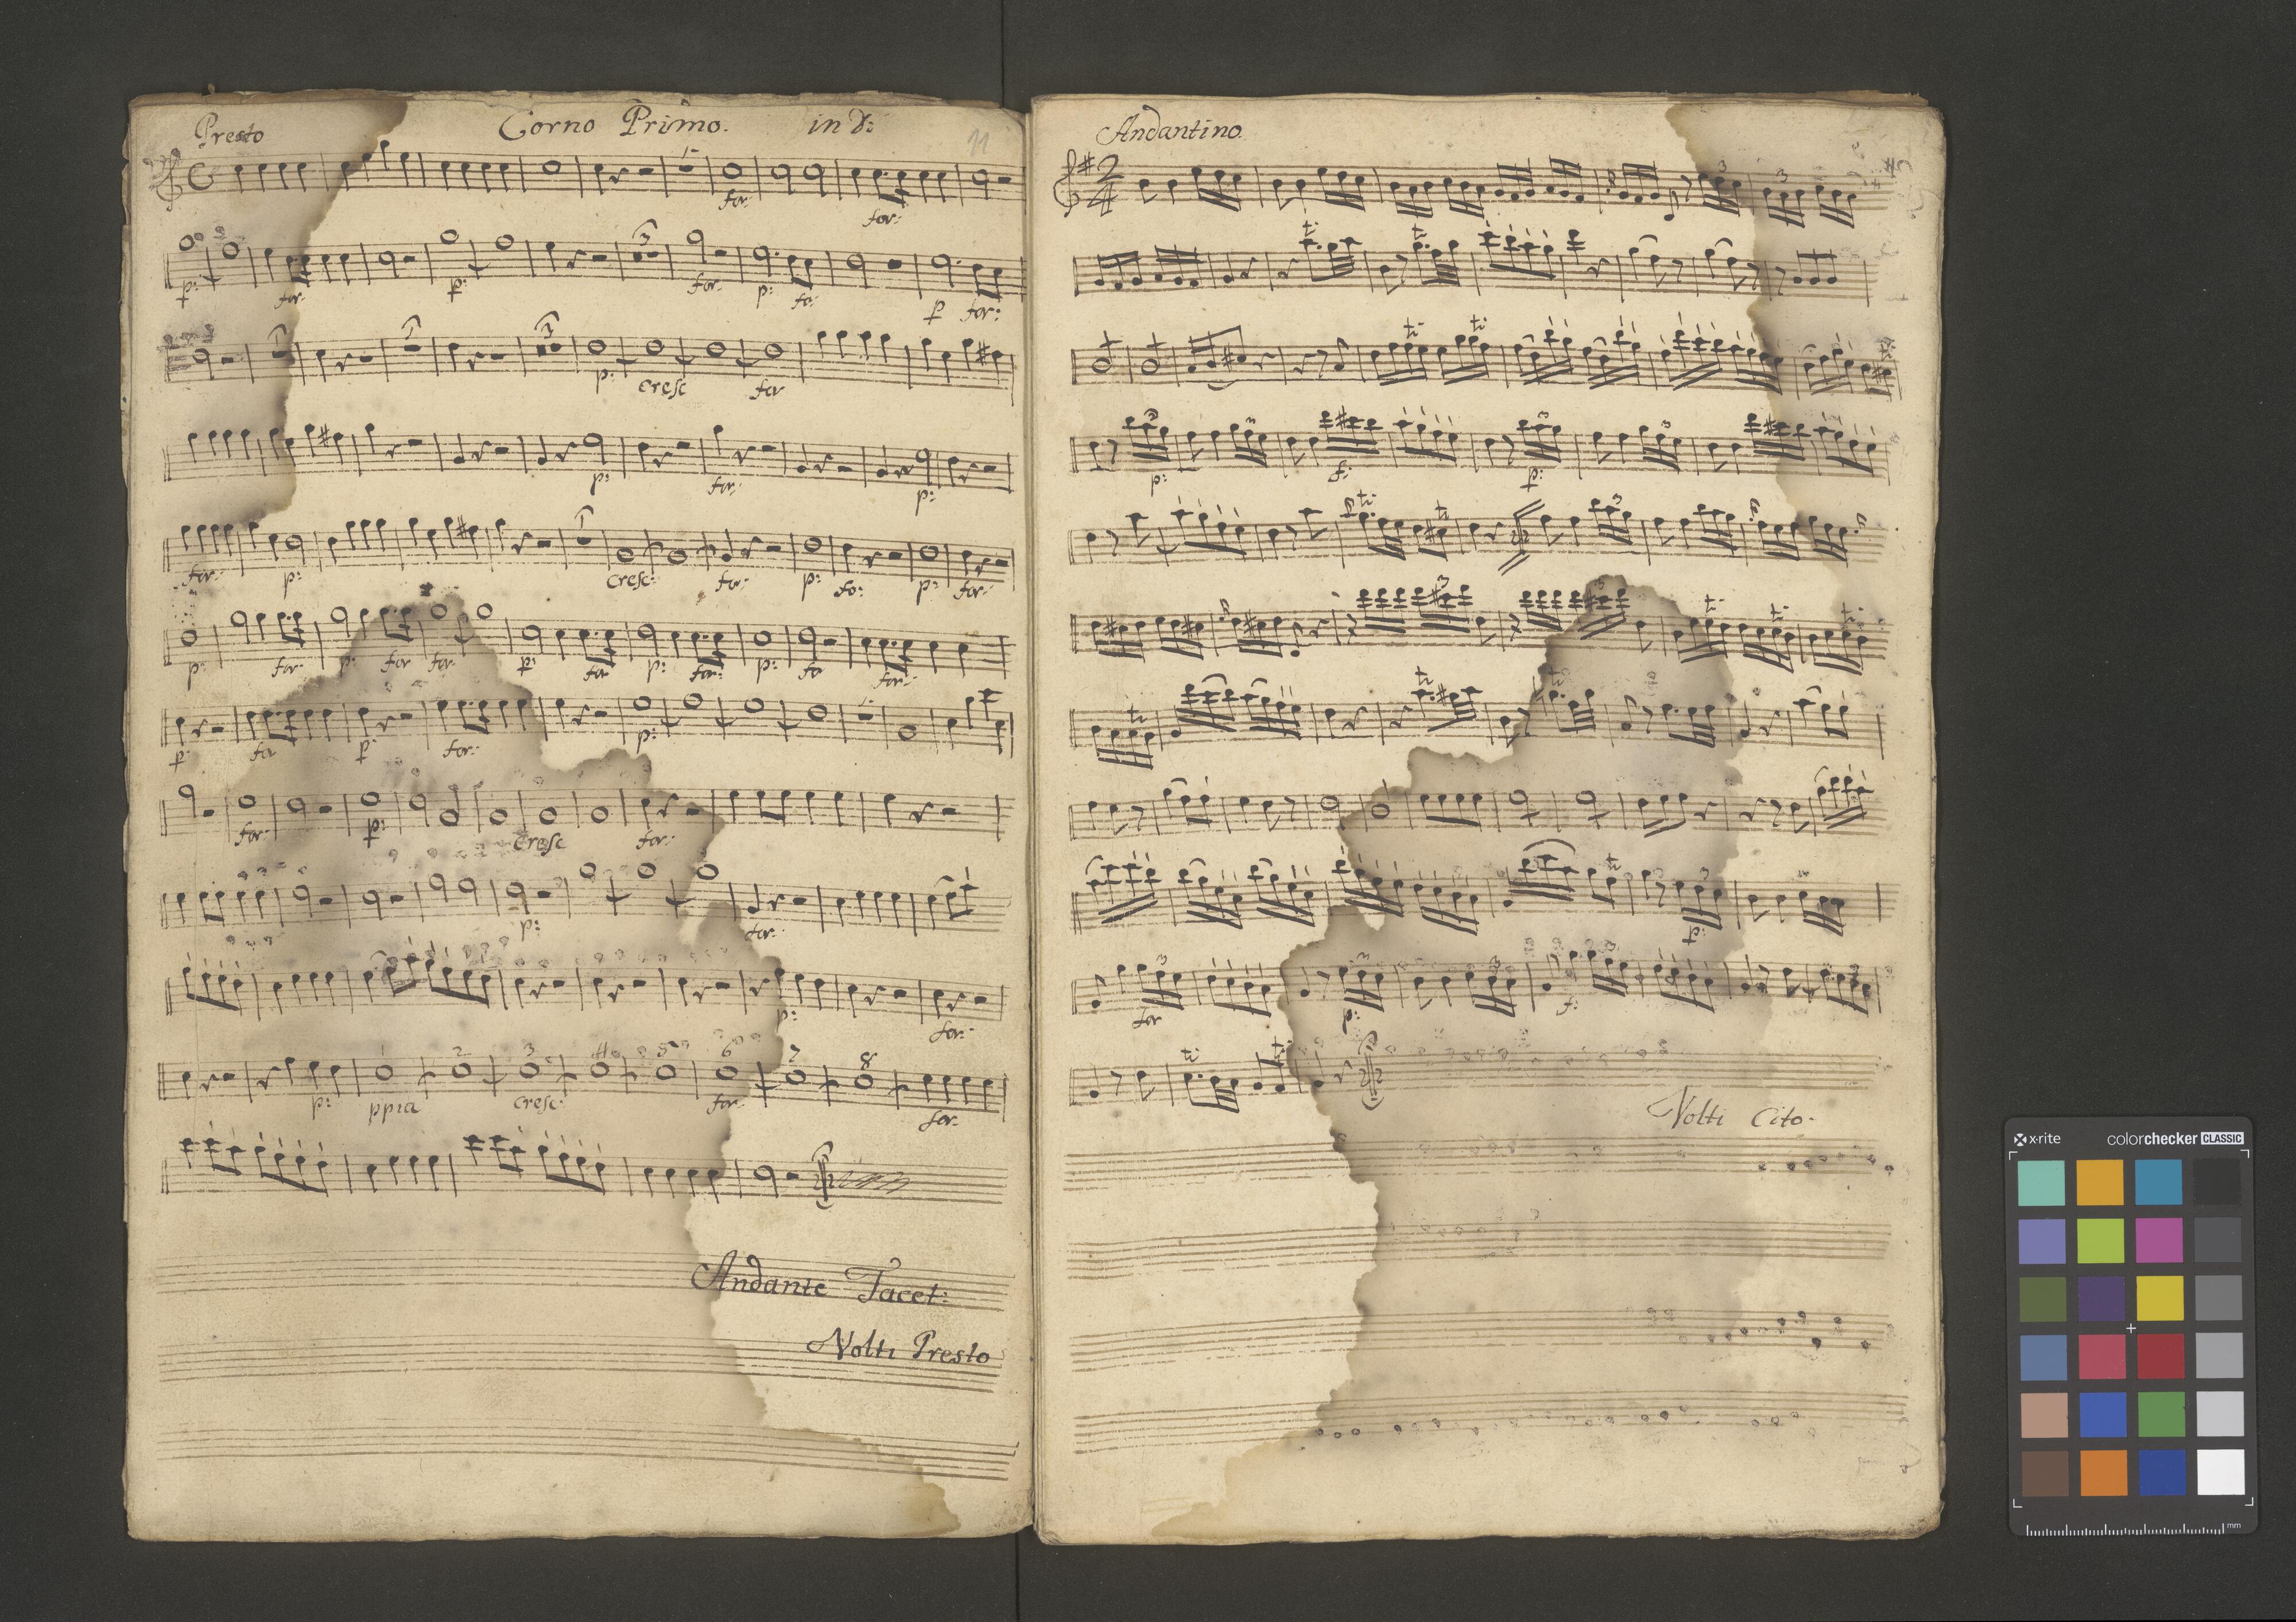 Presto Corno Primo. in D: 11
1
for: for:
3
p: for: p: for: p: fo: p for:
1 1 3
p: cresc for
p: for: p:
1
for: p: cresc: for: p: fo: p: for:
p: for: p: for for: p: for p: for: p: fo for:
1
p: fo p: for: p:
for: p: cresc for:
p: for:
p: for:
1 2 3 4 5 6 7 8
p: ppia cresc: for: for:
Andante Tacet:
Volti Presto
Andantino.
2
4
3 3
t: t:
t: t:
3 3 3 3
p: f: p:
t: t: 3
3 3 t: t: t:
t: t: t:
t: 3 3
p:
3 3 3 3 3
for p: f:
t: t:
Volti Cito.
x-rite colorchecker CLASSIC
mm